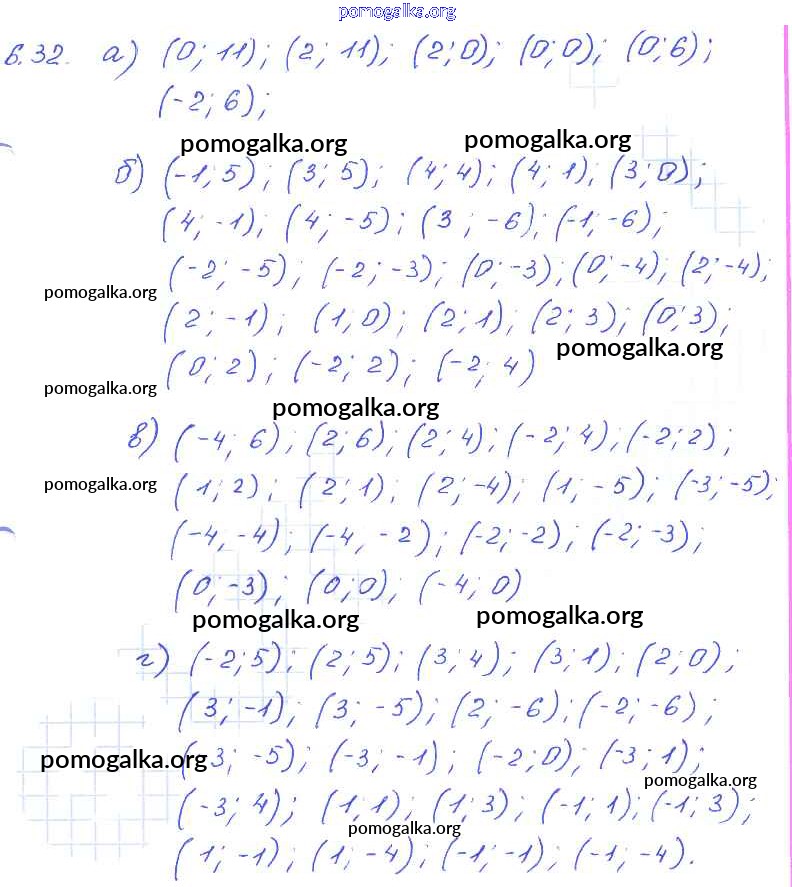 pomogalka.org
6.32. а) (0; 11); (2; 11); (2; 0); (0; 0); (0; 6);
(-2; 6);
pomogalka.org pomogalka.org
б) (-1; 5); (3; 5); (4; 4); (4; 1); (3; 0);
(4, -1); (4; -5); (3; -6); (-1; -6);
(-2; -5); (-2; -3); (0; -3); (0; -4); (2; -4);
pomogalka.org
(2; -1); (1, 0); (2; 1); (2; 3); (0; 3);
pomogalka.org
(0; 2); (-2; 2); (-2; 4)
pomogalka.org
pomogalka.org
в) (-4; 6); (2; 6); (2; 4); (-2; 4); (-2; 2);
pomogalka.org
(1; 2); (2; 1); (2; -4); (1; -5); (-3; -5);
(-4, -4); (-4, -2); (-2; -2); (-2; -3);
(0; -3); (0; 0); (-4; 0)
pomogalka.org pomogalka.org
г) (-2; 5); (2; 5); (3; 4); (3; 1); (2; 0);
(3; -1); (3; -5); (2; -6); (-2; -6);
pomogalka.org
(-3; -5); (-3; -1); (-2; 0); (-3; 1);
pomogalka.org
(-3; 4); (1, 1); (1; 3); (-1; 1); (-1; 3);
pomogalka.org
(1; -1); (1; -4); (-1; -1); (-1; -4).